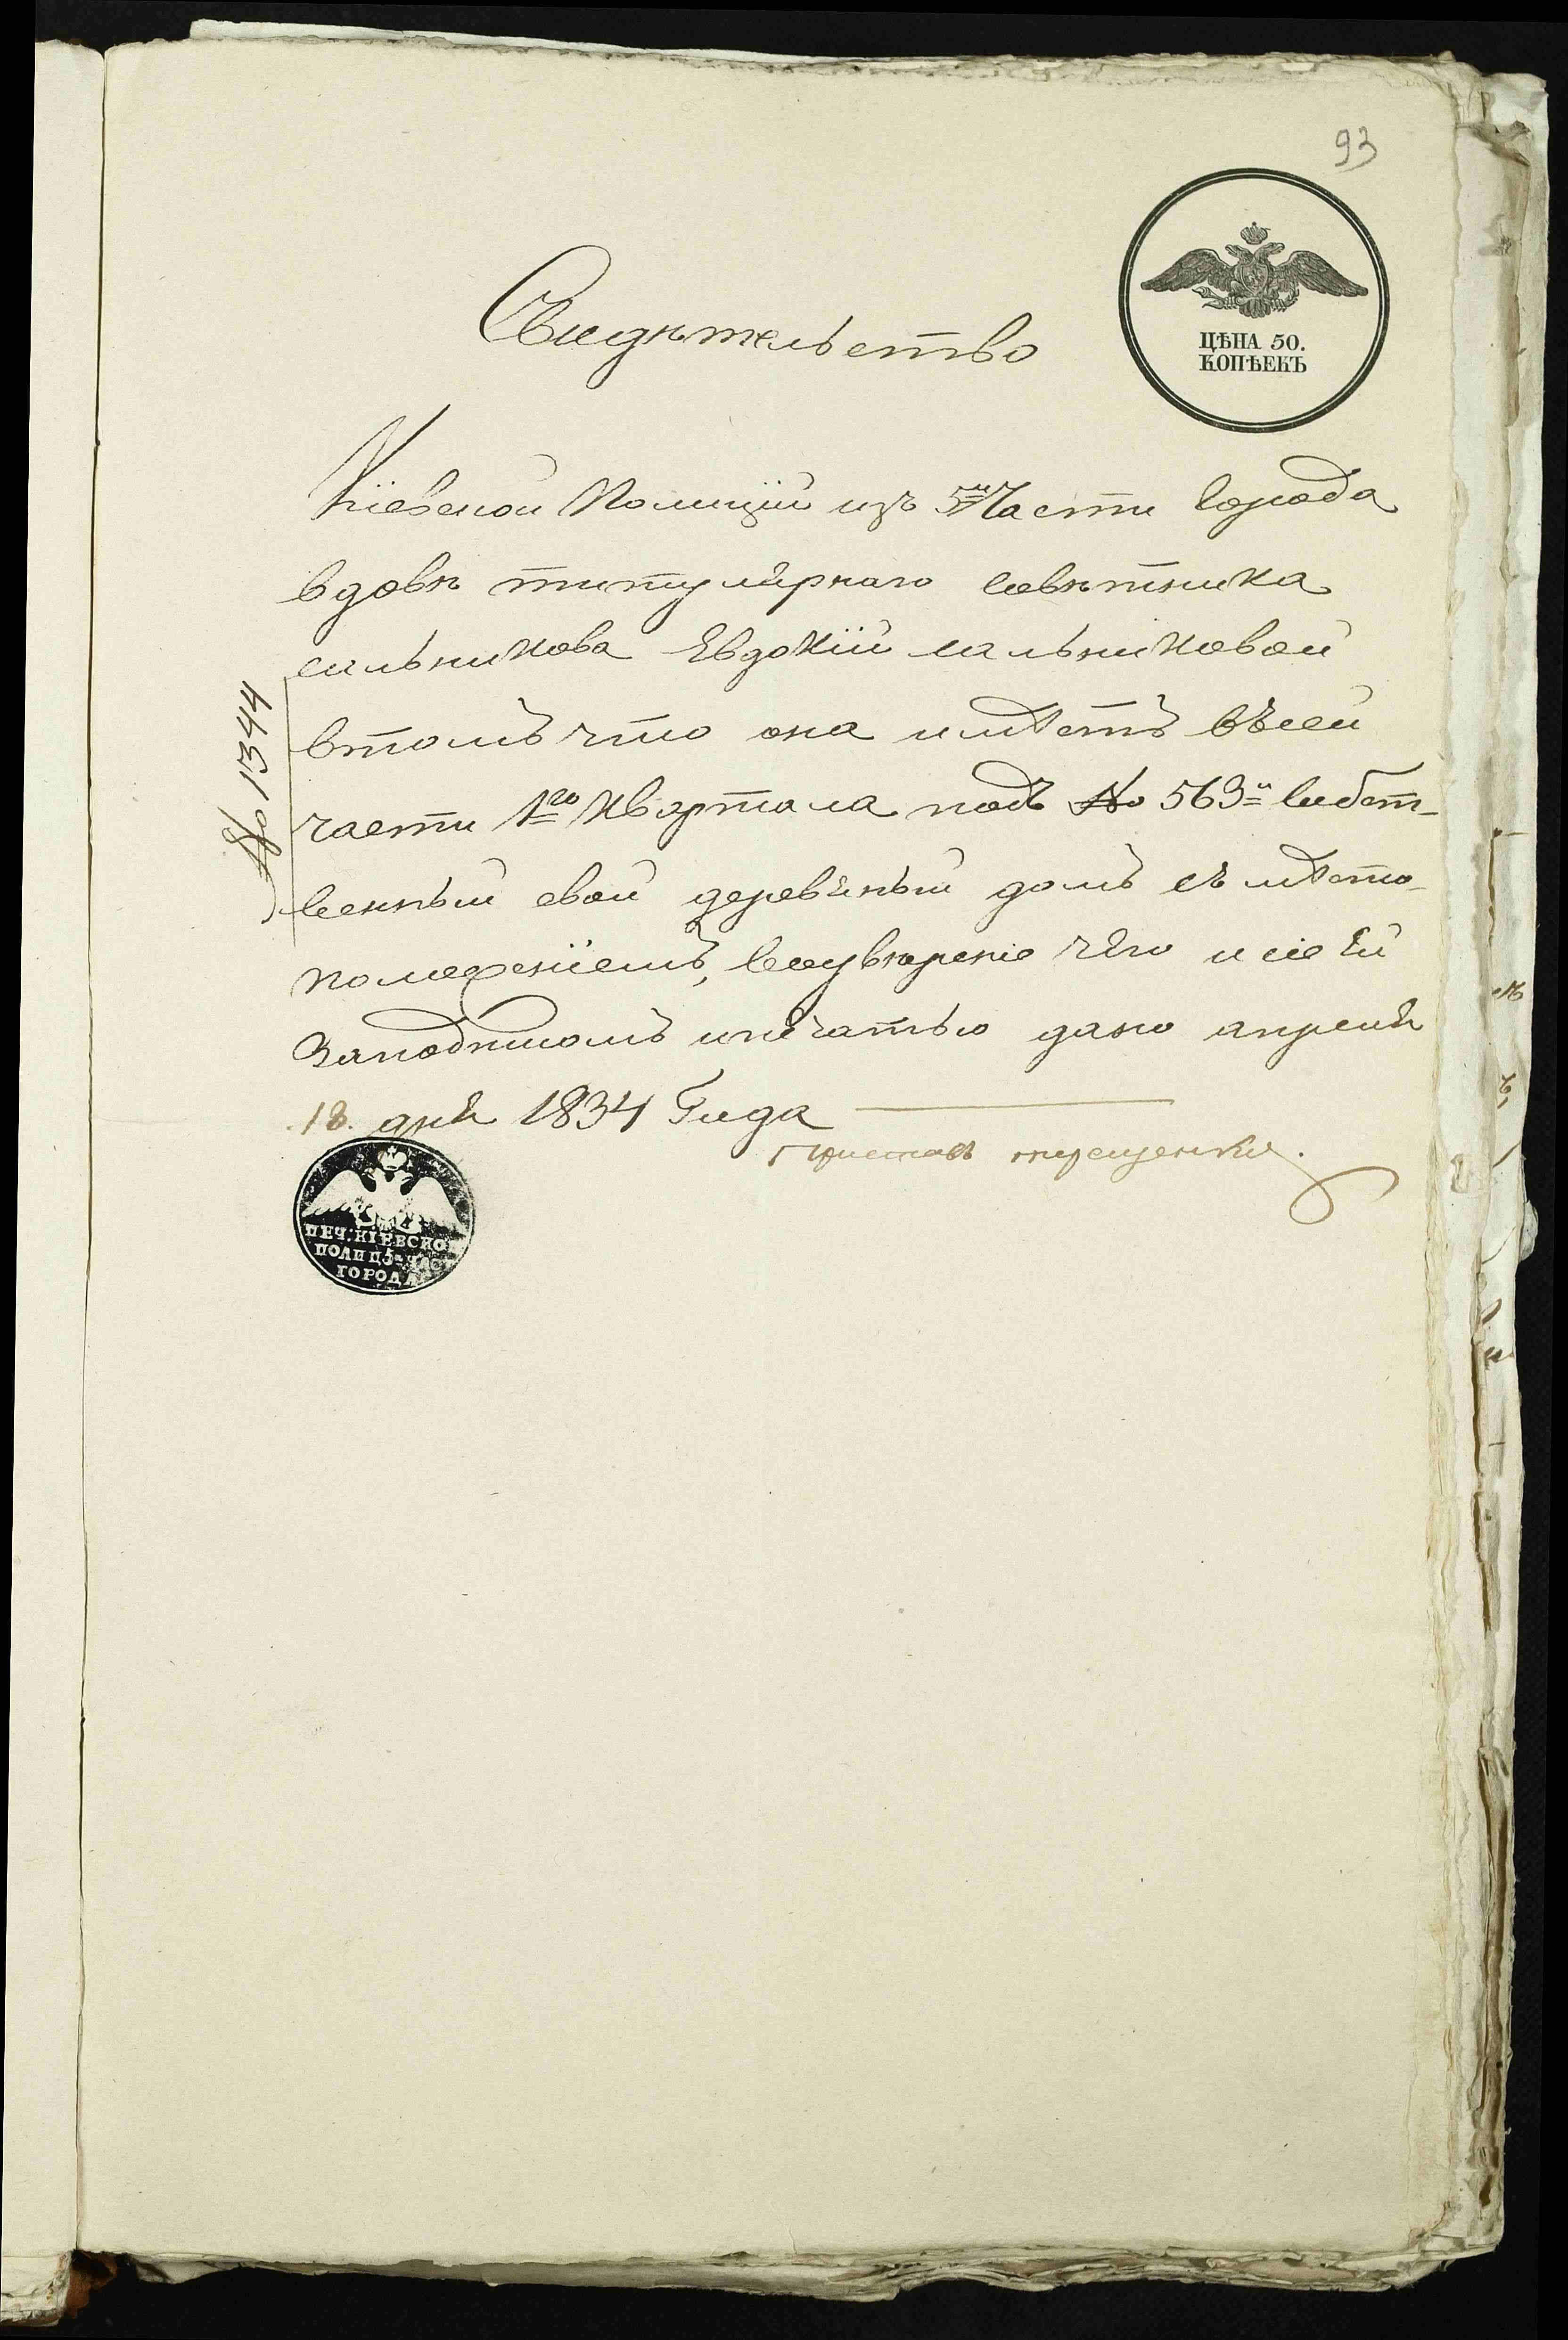 93
ЦѢНА 50.
КОПѢЕКЪ
Свидѣтельство
Кіевской Полиціи изъ 5й Части города
вдовѣ титулярнаго совѣтника
сальникова Евдокіи сальниковой
втомъ что она имѣетъ въсей
части 1го квартала подъ № 563м собст-
венный свой деревяный домъ съ мѣсто-
положеніемъ, воувѣреніе чего и сіе ей
заподписомъ ипечатью дано апреля
18. дня 1834 Года
Приставъ терещенко.
№ 1344
ПЕЧ. КІЕВСКО
ПОЛИЦ 5й ЧАС
ГОРОДА